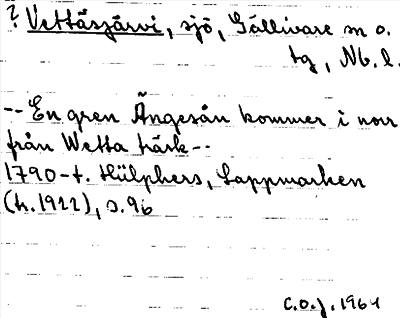 ? Vettäsjärvi, sjö, Gällivare sn o.
tg, Nb. l.
-- En gren Ängesån kommer i norr
från Wetta träsk --
1790-t. Hülphers, Lappmarken
(tr. 1922), s. 96
C.O.J. 1964